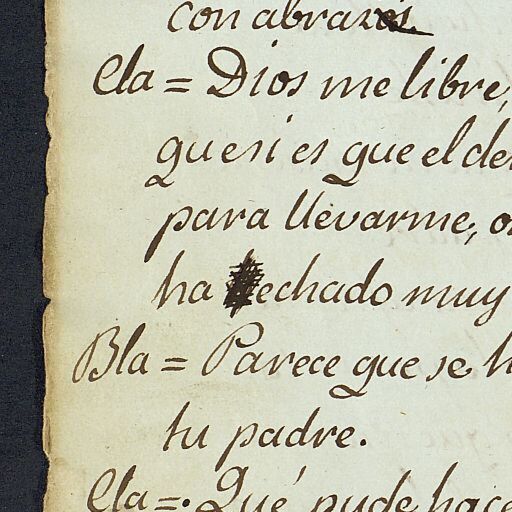 con abrazos.
Cla = Dios me libre,
que si es que el de
para llevarme, o
ha echado muy
Bla = Parece que se h
tu padre.
Cla =. Qué pude hace